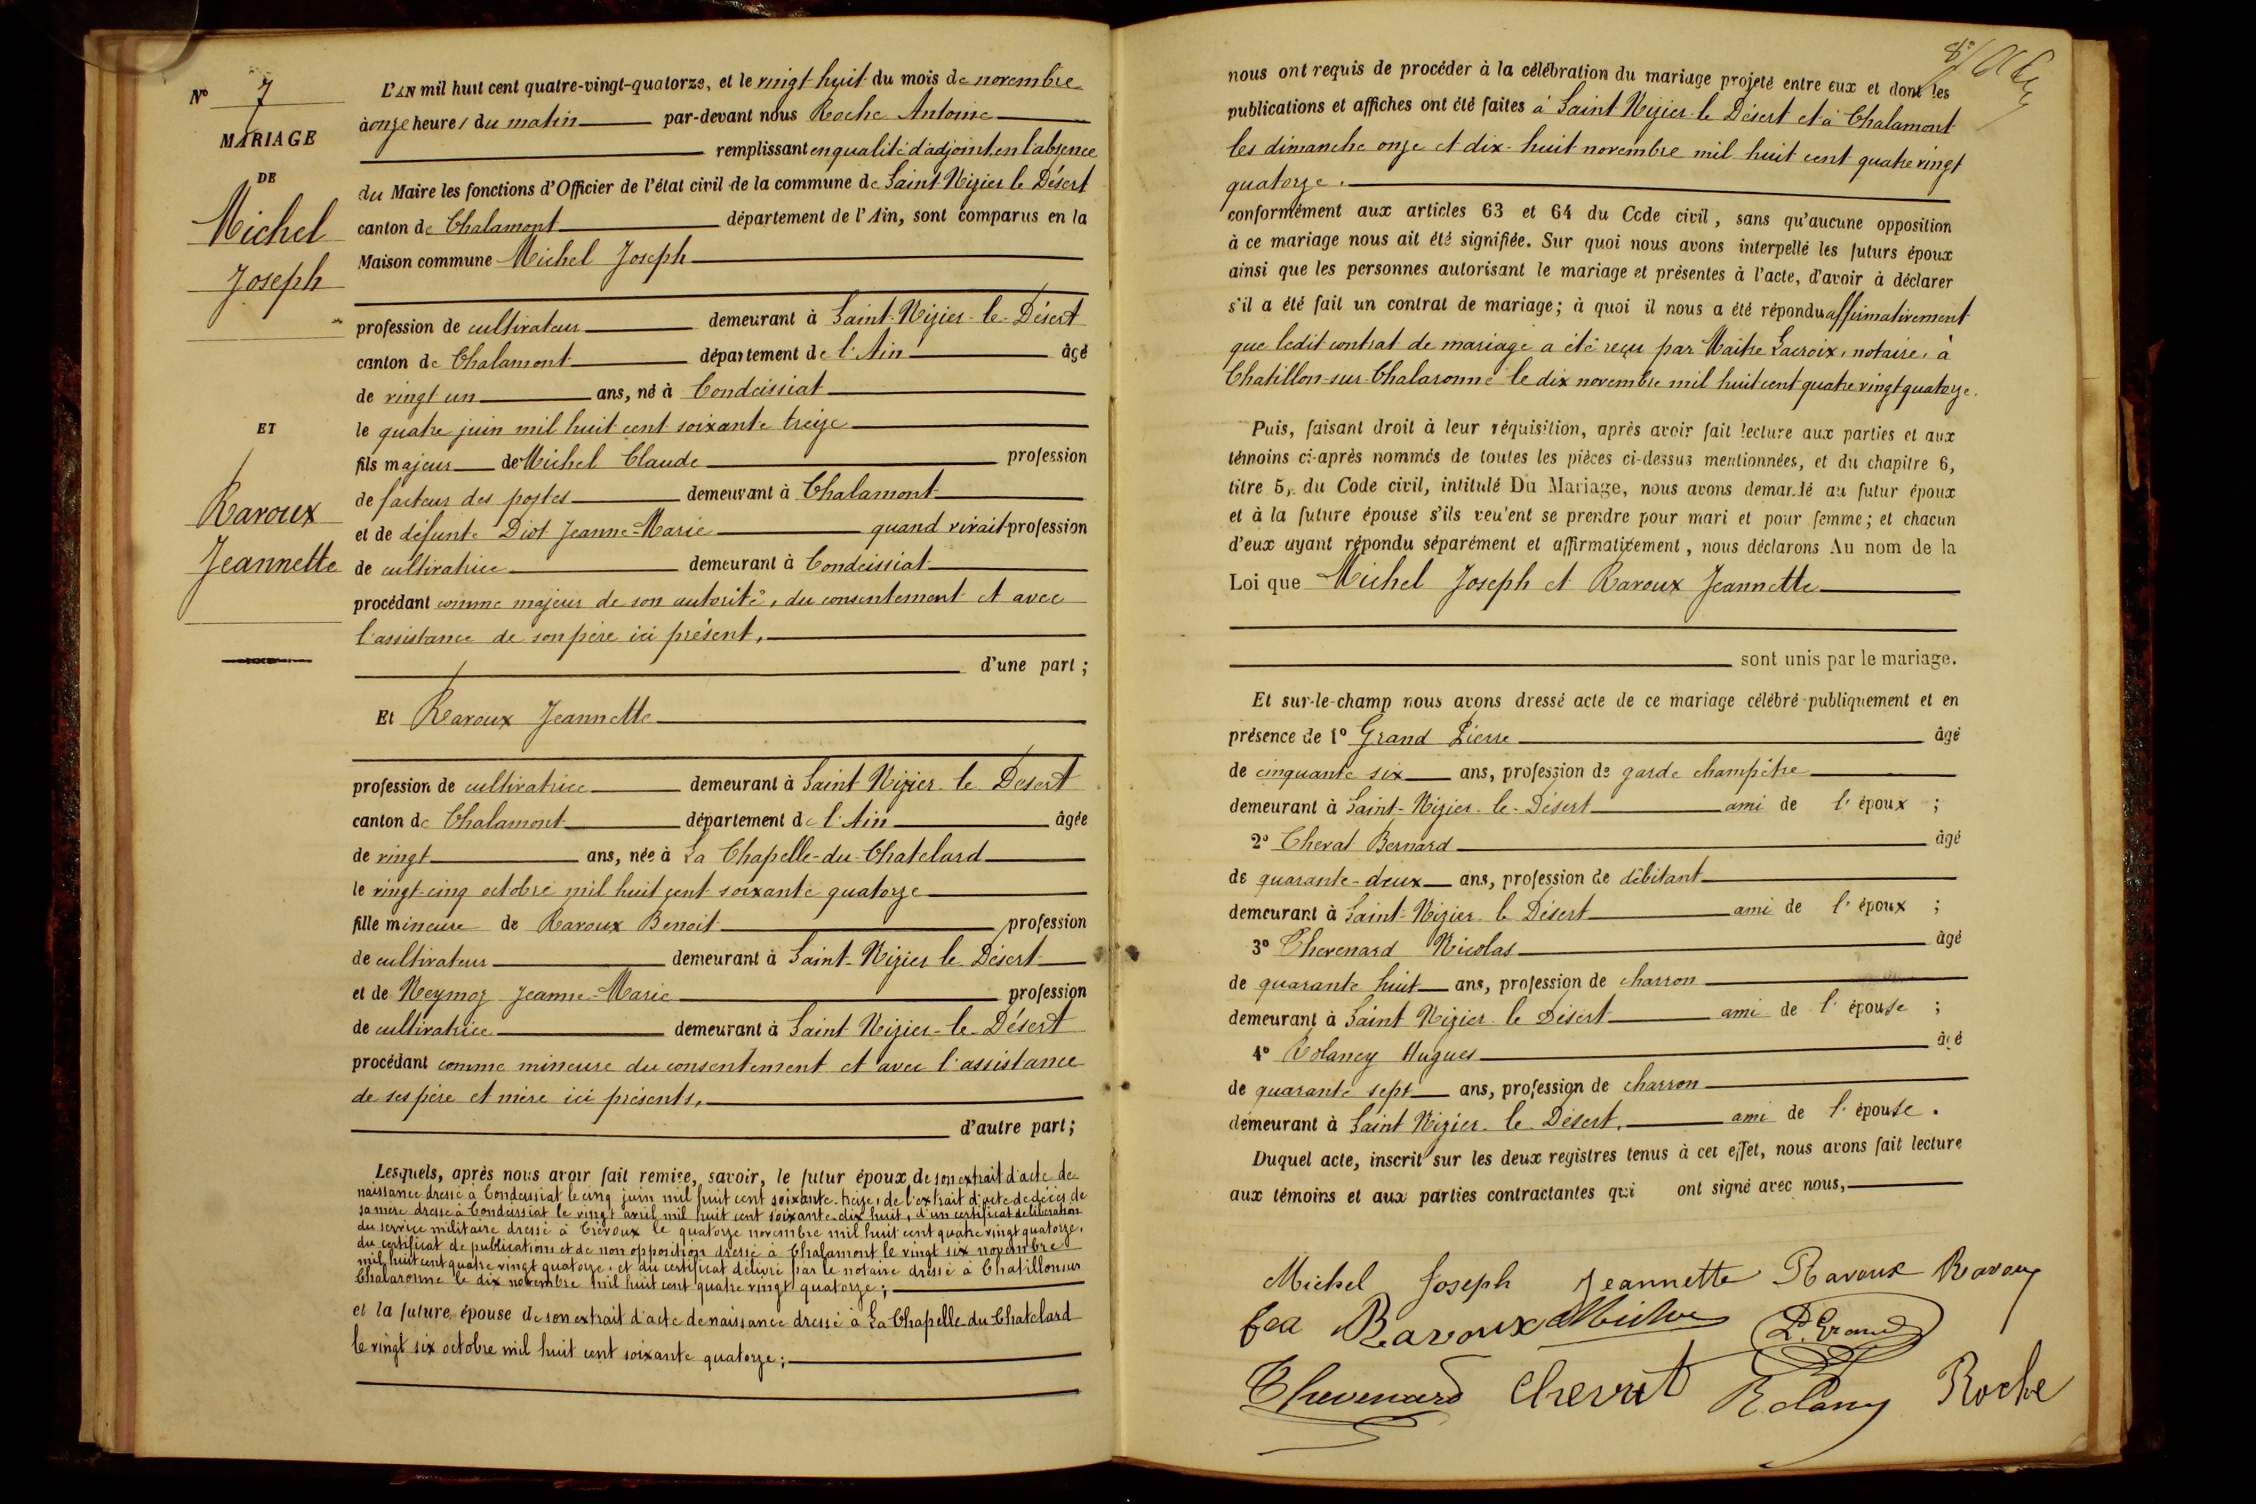 N° 7
MARIAGE
DE
Michel
Joseph
ET
Ravoux
Jeannette
L'AN mil huit cent quatre-vingt-quatorze, et le vingt huit du mois de novembre
à onze heures du matin par-devant nous Roche Antoine
remplissant en qualité d'adjoint en l'absence
du Maire les fonctions d'Officier de l'état civil de la commune de Saint-Nizier le Désert
canton de Chalamont département de l'Ain, sont comparus en la
Maison commune Michel Joseph
profession de cultivateur demeurant à Saint-Nizier-le-Désert
canton de Chalamont département de l'Ain âgé
de vingt un ans, né à Condeissiat
le quatre juin mil huit cent soixante treize
fils majeur de Michel Claude profession
de facteur des postes demeurant à Chalamont
et de défunte Diot Jeanne-Marie quand vivait profession
de cultivatrice demeurant à Condeissiat
procédant comme majeur de son autorité, du consentement et avec
l'assistance de son père ici présent,
d'une part ;
Et Ravoux Jeannette
profession de cultivatrice demeurant à Saint Nizier-le Désert
canton de Chalamont département de l'Ain âgée
de vingt ans, née à La Chapelle-du-Chatelard
le vingt-cinq octobre mil huit cent soixante quatorze
fille mineure de Ravoux Benoit profession
de cultivateur demeurant à Saint-Nizier le Désert
et de Neymoz Jeanne-Marie profession
de cultivatrice demeurant à Saint Nizier-le-Désert
procédant comme mineure du consentement et avec l'assistance
de ses père et mère ici présents,
d'autre part ;
Lesquels, après nous avoir fait remise, savoir, le futur époux de son extrait d'acte de
naissance dressé à Condeissiat le cinq juin mil huit cent soixante-treize, de l'extrait d'acte de décès de
sa mère dressé à Condeissiat le vingt avril mil huit cent soixante-dix huit, d'un certificat de libération
du service militaire dressé à Trévoux le quatorze novembre mil huit cent quatre vingt quatorze,
du certificat de publications et de non opposition dressé à Chalamont le vingt six novembre
mil huit cent quatre vingt quatorze, et du certificat délivré par le notaire dressé à Chatillon sur
Chalaronne le dix novembre mil huit cent quatre vingt quatorze ;
et la future épouse de son extrait d'acte de naissance dressé à La Chapelle-du-Chatelard
le vingt six octobre mil huit cent soixante quatorze ;
nous ont requis de procéder à la célébration du mariage projeté entre eux et dont les
publications et affiches ont été faites à Saint Nizier-le Désert et à Chalamont
les dimanche onze et dix-huit novembre mil huit cent quatre vingt
quatorze.
conformément aux articles 63 et 64 du Code civil, sans qu'aucune opposition
à ce mariage nous ait été signifiée. Sur quoi nous avons interpellé les futurs époux
ainsi que les personnes autorisant le mariage et présentes à l'acte, d'avoir à déclarer
s'il a été fait un contrat de mariage ; à quoi il nous a été répondu affirmativement
que ledit contrat de mariage a été reçu par Maître Lacroix, notaire, à
Chatillon-sur-Chalaronne le dix novembre mil huit cent quatre vingt quatorze.
Puis, faisant droit à leur réquisition, après avoir fait lecture aux parties et aux
témoins ci-après nommés de toutes les pièces ci-dessus mentionnées, et du chapitre 6,
titre 5, du Code civil, intitulé Du Mariage, nous avons demandé au futur époux
et à la future épouse s'ils veulent se prendre pour mari et pour femme ; et chacun
d'eux ayant répondu séparément et affirmativement, nous déclarons Au nom de la
Loi que Michel Joseph et Ravoux Jeannette
sont unis par le mariage.
Et sur-le-champ nous avons dressé acte de ce mariage célébré publiquement et en
présence de 1° Grand Pierre âgé
de cinquante six ans, profession de garde champêtre
demeurant à Saint-Nizier-le-Désert ami de l'époux ;
2° Chevat Bernard âgé
de quarante-deux ans, profession de débitant
demeurant à Saint-Nizier-le Désert ami de l'époux ;
3° Thevenard Nicolas âgé
de quarante huit ans, profession de charron
demeurant à Saint Nizier-le Désert ami de l'épouse ;
4° Rolancy Hugues âgé
de quarante sept ans, profession de charron
demeurant à Saint Nizier-le Désert, ami de l'épouse.
Duquel acte, inscrit sur les deux registres tenus à cet effet, nous avons fait lecture
aux témoins et aux parties contractantes qui ont signé avec nous,
Michel Joseph Jeannette Ravoux Ravoux
Ravoux Michel P. Grand
Thevenard Chevrat Rolancy Roche